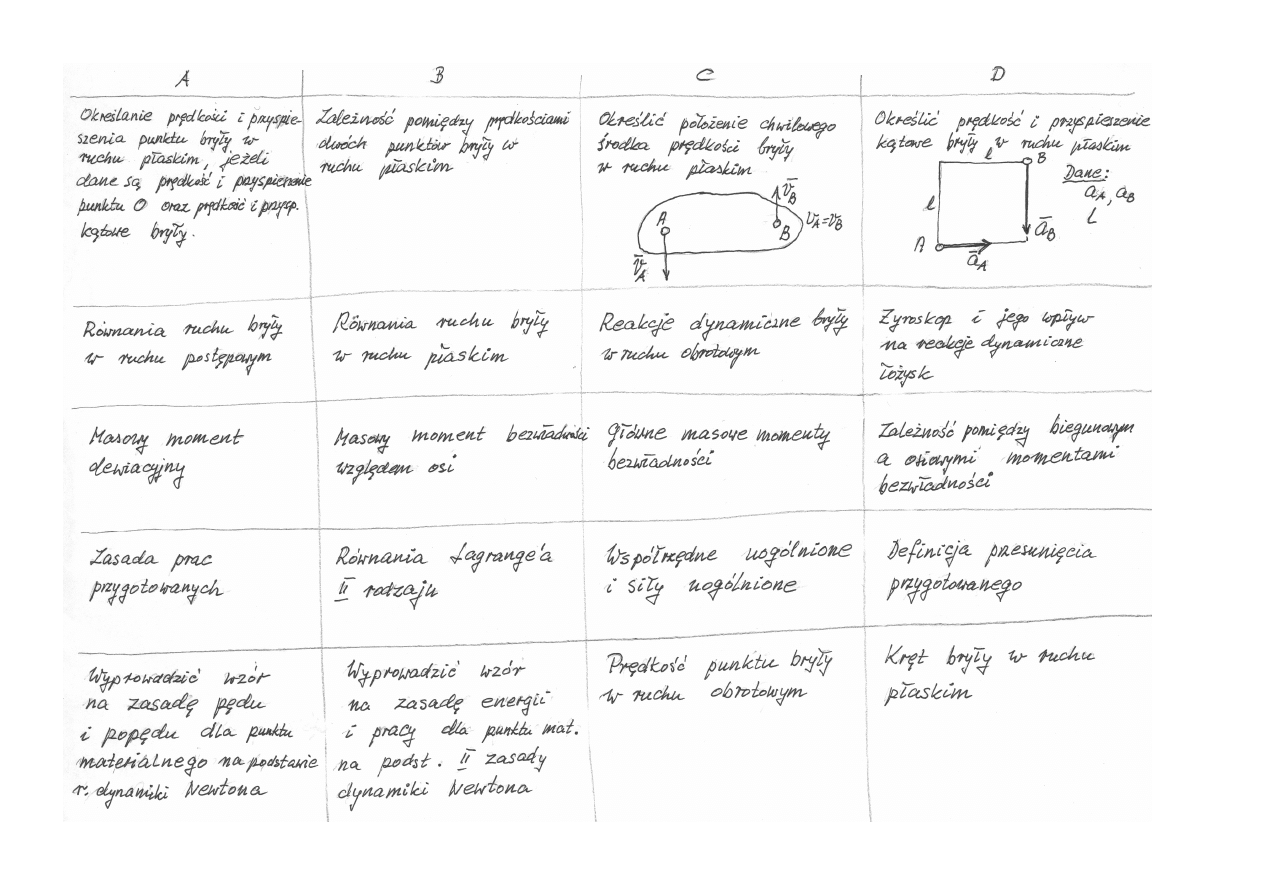 A
B
C
D
Określanie prędkości i przyspie-
szenia punktu bryły w
ruchu płaskim, jeżeli
dane są prędkość i przyspieszenie
punktu O oraz prędkość i przysp.
kątowe bryły.
Zależność pomiędzy prędkościami
dwóch punktów bryły w
ruchu płaskim
Określić położenie chwilowego
środka prędkości bryły
w ruchu płaskim
A
B
v̄A
v̄B
vA=vB
Określić prędkość i przyspieszenie
kątowe bryły w ruchu płaskim
l
B
l
A
āA
āB
Dane:
aA, aB
L
Równania ruchu bryły
w ruchu postępowym
Równania ruchu bryły
w ruchu płaskim
Reakcje dynamiczne bryły
w ruchu obrotowym
Żyroskop i jego wpływ
na reakcje dynamiczne
łożysk
Masowy moment
dewiacyjny
Masowy moment bezwładności
względem osi
Główne masowe momenty
bezwładności
Zależność pomiędzy biegunowym
a osiowymi momentami
bezwładności
Zasada prac
przygotowanych
Równania Lagrange'a
II rodzaju
Współrzędne uogólnione
i siły uogólnione
Definicja przesunięcia
przygotowanego
Wyprowadzić wzór
na zasadę pędu
i popędu dla punktu
materialnego na podstawie
r. dynamiki Newtona
Wyprowadzić wzór
na zasadę energii
i pracy dla punktu mat.
na podst. II zasady
dynamiki Newtona
Prędkość punktu bryły
w ruchu obrotowym
Kręt bryły w ruchu
płaskim